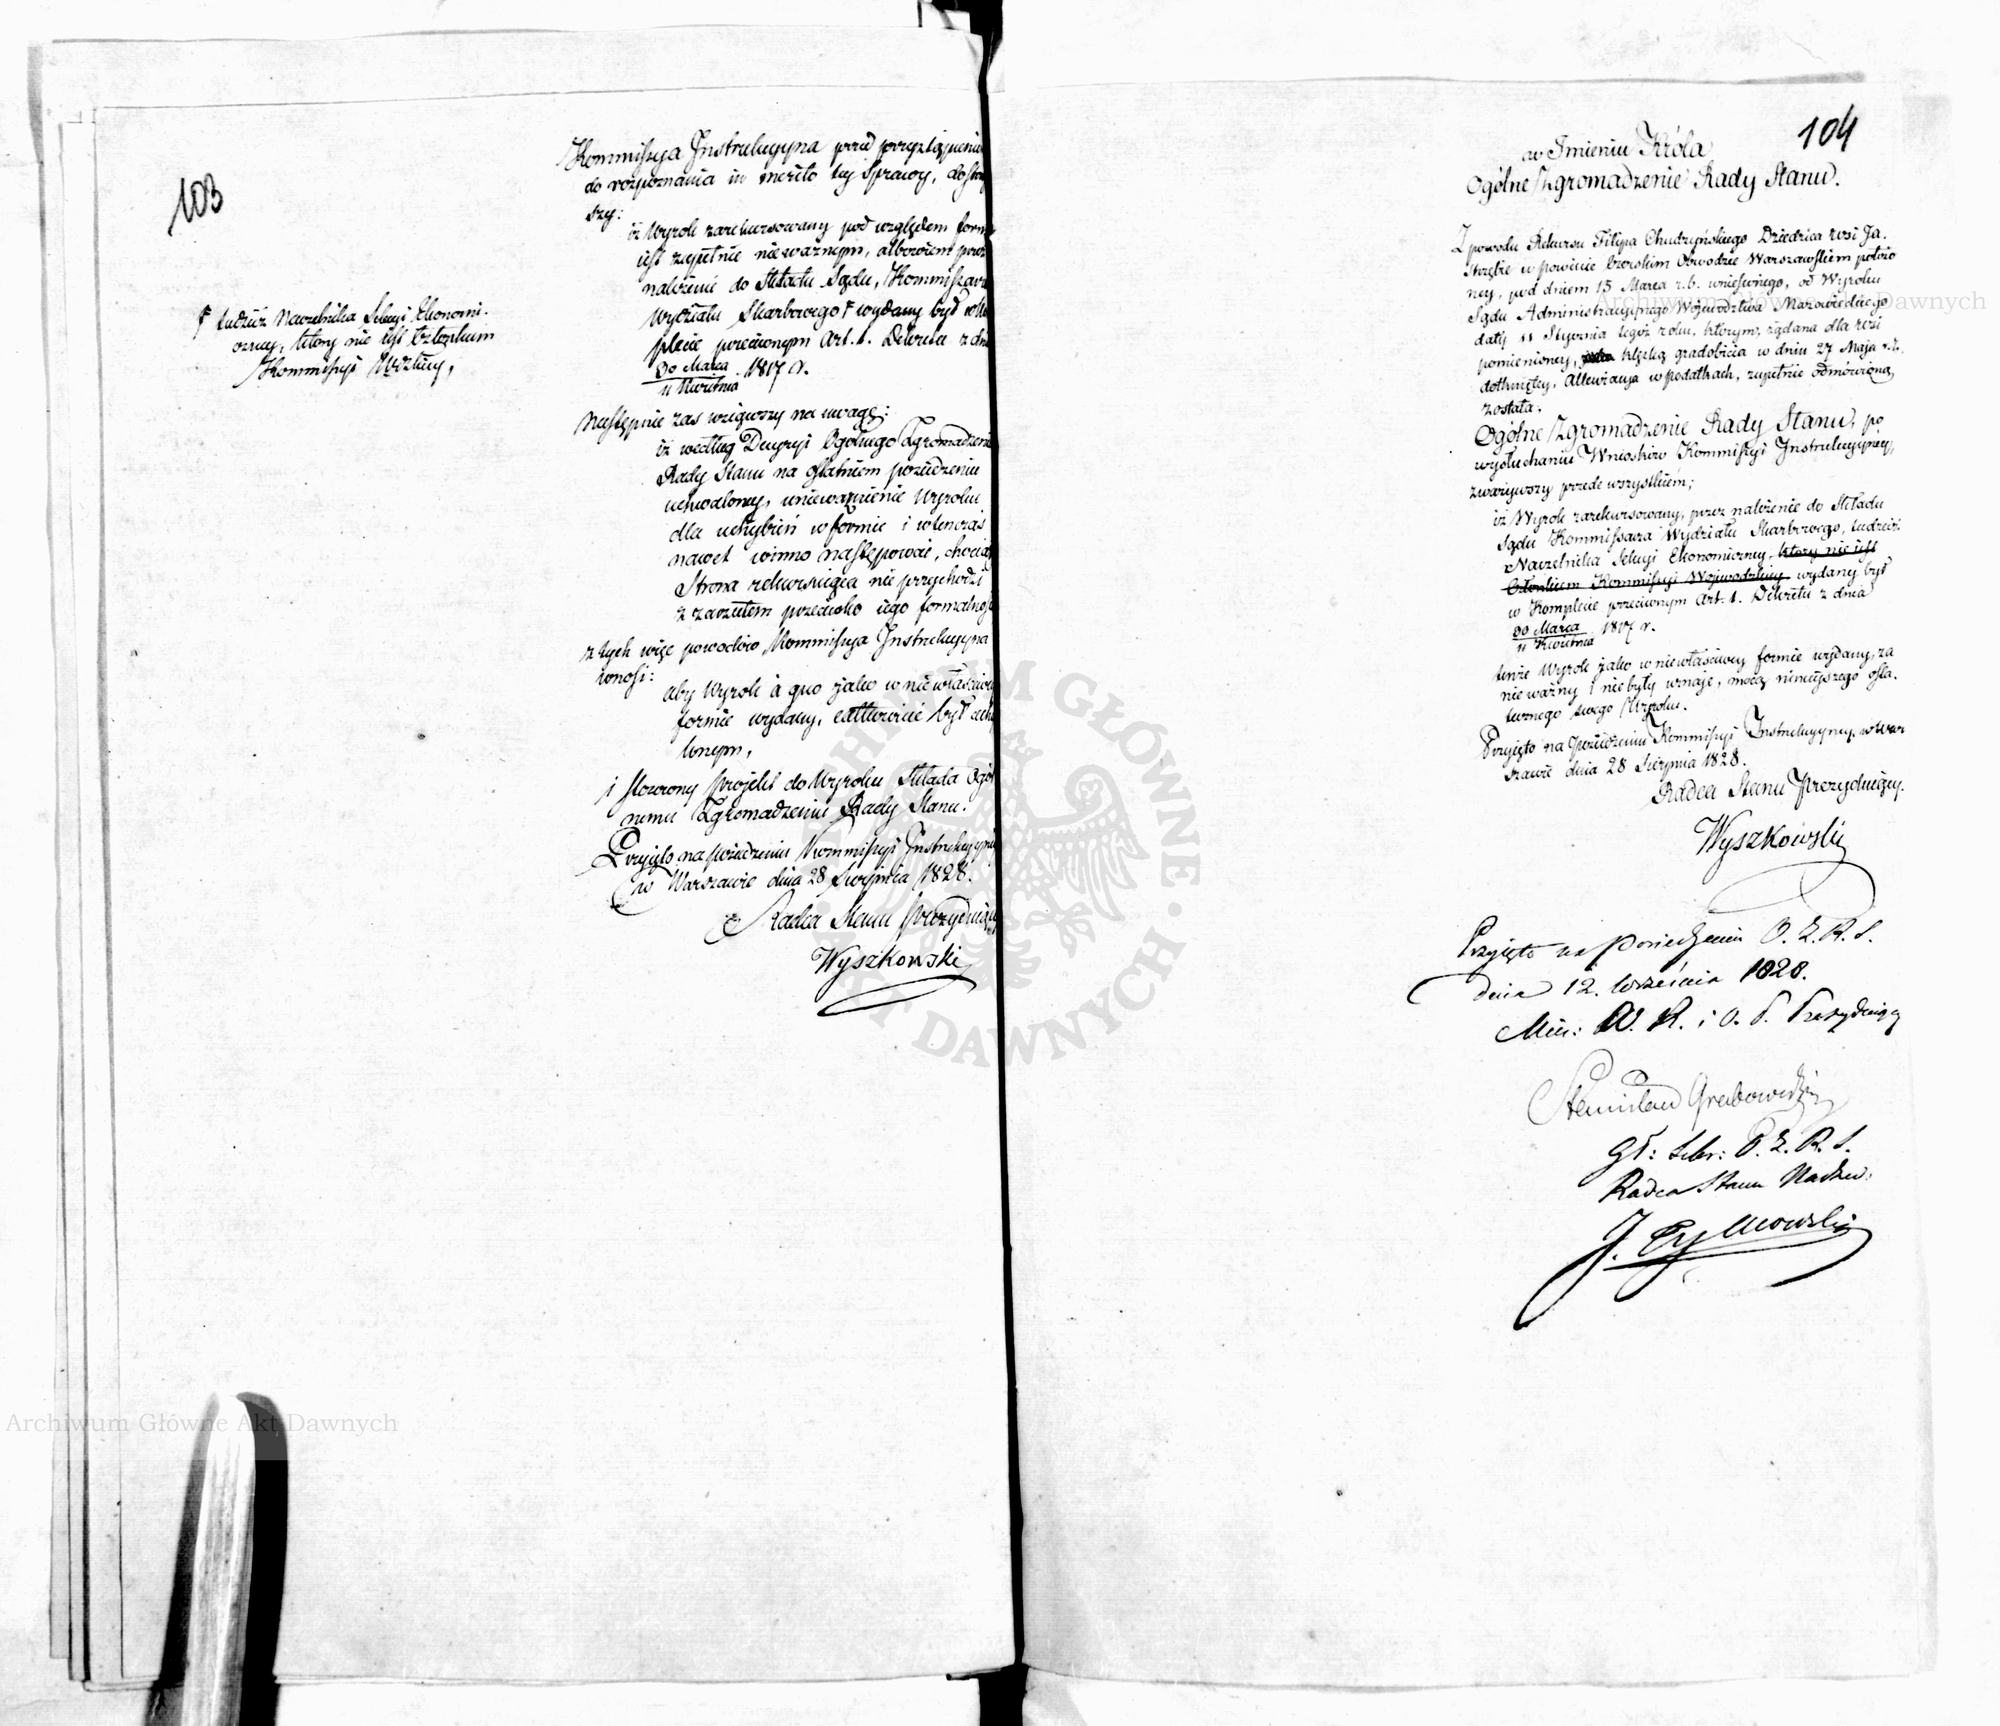 103
Kommissya Instrukcyjna przed przystąpieniem
do rozpoznania in merito tey sprawy, dostrze
szy:
iż Wyrok zarekursowany pod względem formy
iest zupełnie nieważnym, albowiem przez
należenie do Składu Sądu, Kommissarza
Wydziału Skarbowego F wydany był w Kom
plecie przeciwnym Art. 1. Dekretu z dnia
30 Marca
11 Kwietnia 1817 r.
F tudzież Naczelnika Sekcyi Ekonomi-
czney, który nie iest Członkiem
Kommissyi Wdzkiey,
Następnie zas wziąwszy na uwagę:
iż według Decyzyi Ogólnego Zgromadzenia
Rady Stanu na ostatniem posiedzeniu
uchwaloney, unieważnienie Wyroku
dla uchybień w formie i wtenczas
nawet winno następować, chociaż
Strona rekursuiąca nie przychodzi
z zarzutem przeciwko iego formalności
z tych więc powodów Kommissya Instrukcyjna
wnosi:
aby Wyrok à quo jako w niewłaściwey
formie wydany, całkowicie był uchy
lonym,
i stosowny projekt do Wyroku składa Ogól
nemu Zgromadzeniu Rady Stanu.
Przyjęto na posiedzeniu Kommissyi Instrukcyjney
w Warszawie dnia 28 Sierpnia 1828.
Radca Stanu Prezyduiący
Wyszkowski
104
w Imieniu Króla
Ogólne Zgromadzenie Rady Stanu.
Z powodu Rekursu Filipa Chudzyńskiego Dziedzica wsi Ja-
strzębie w powiecie Czerskim Obwodzie Warszawskiem położo
ney, pod dniem 15 Marca r. b. wniesionego, od Wyroku
Sądu Administracyjnego Województwa Mazowieckiego
daty 11 Stycznia tegoż roku, którym, żądana dla wsi
pomienioney, klęską gradobicia w dniu 27 Maja r. z.
dotkniętey, Allewiacya w podatkach, zupełnie odmówioną
została.
Ogólne Zgromadzenie Rady Stanu, po
wysłuchaniu Wniosków Kommissyi Instrukcyjney,
zważywszy przede wszystkiem;
iż Wyrok zarekursowany, przez należenie do Składu
Sądu Kommissarza Wydziału Skarbowego, tudzież
Naczelnika Sekcyi Ekonomiczney, który nie iest
Członkiem Kommissyi Wojewódzkiey wydany był
w Komplecie przeciwnym Art. 1. Dekretu z dnia
30 Marca
11 Kwietnia 1817 r.
tenże Wyrok jako w niewłaściwey formie wydany, za
nieważny i niebyły uznaje, mocą ninieyszego osta-
tecznego swego Wyroku.
Przyjęto na posiedzeniu Kommissyi Instrukcyjney w War
szawie dnia 28 Sierpnia 1828.
Radca Stanu Prezyduiący.
Wyszkowski
Przyięto na Posiedzeniu O. Z. R. S.
dnia 12. Września 1828.
Min: W. R. i O. P. Prezyduiący
Stanisław Grabowski
Radca Stanu Nadzw:
Archiwum Główne Akt Dawnych
Archiwum Główne Akt Dawnych
ARCHIWUM GŁÓWNE AKT DAWNYCH